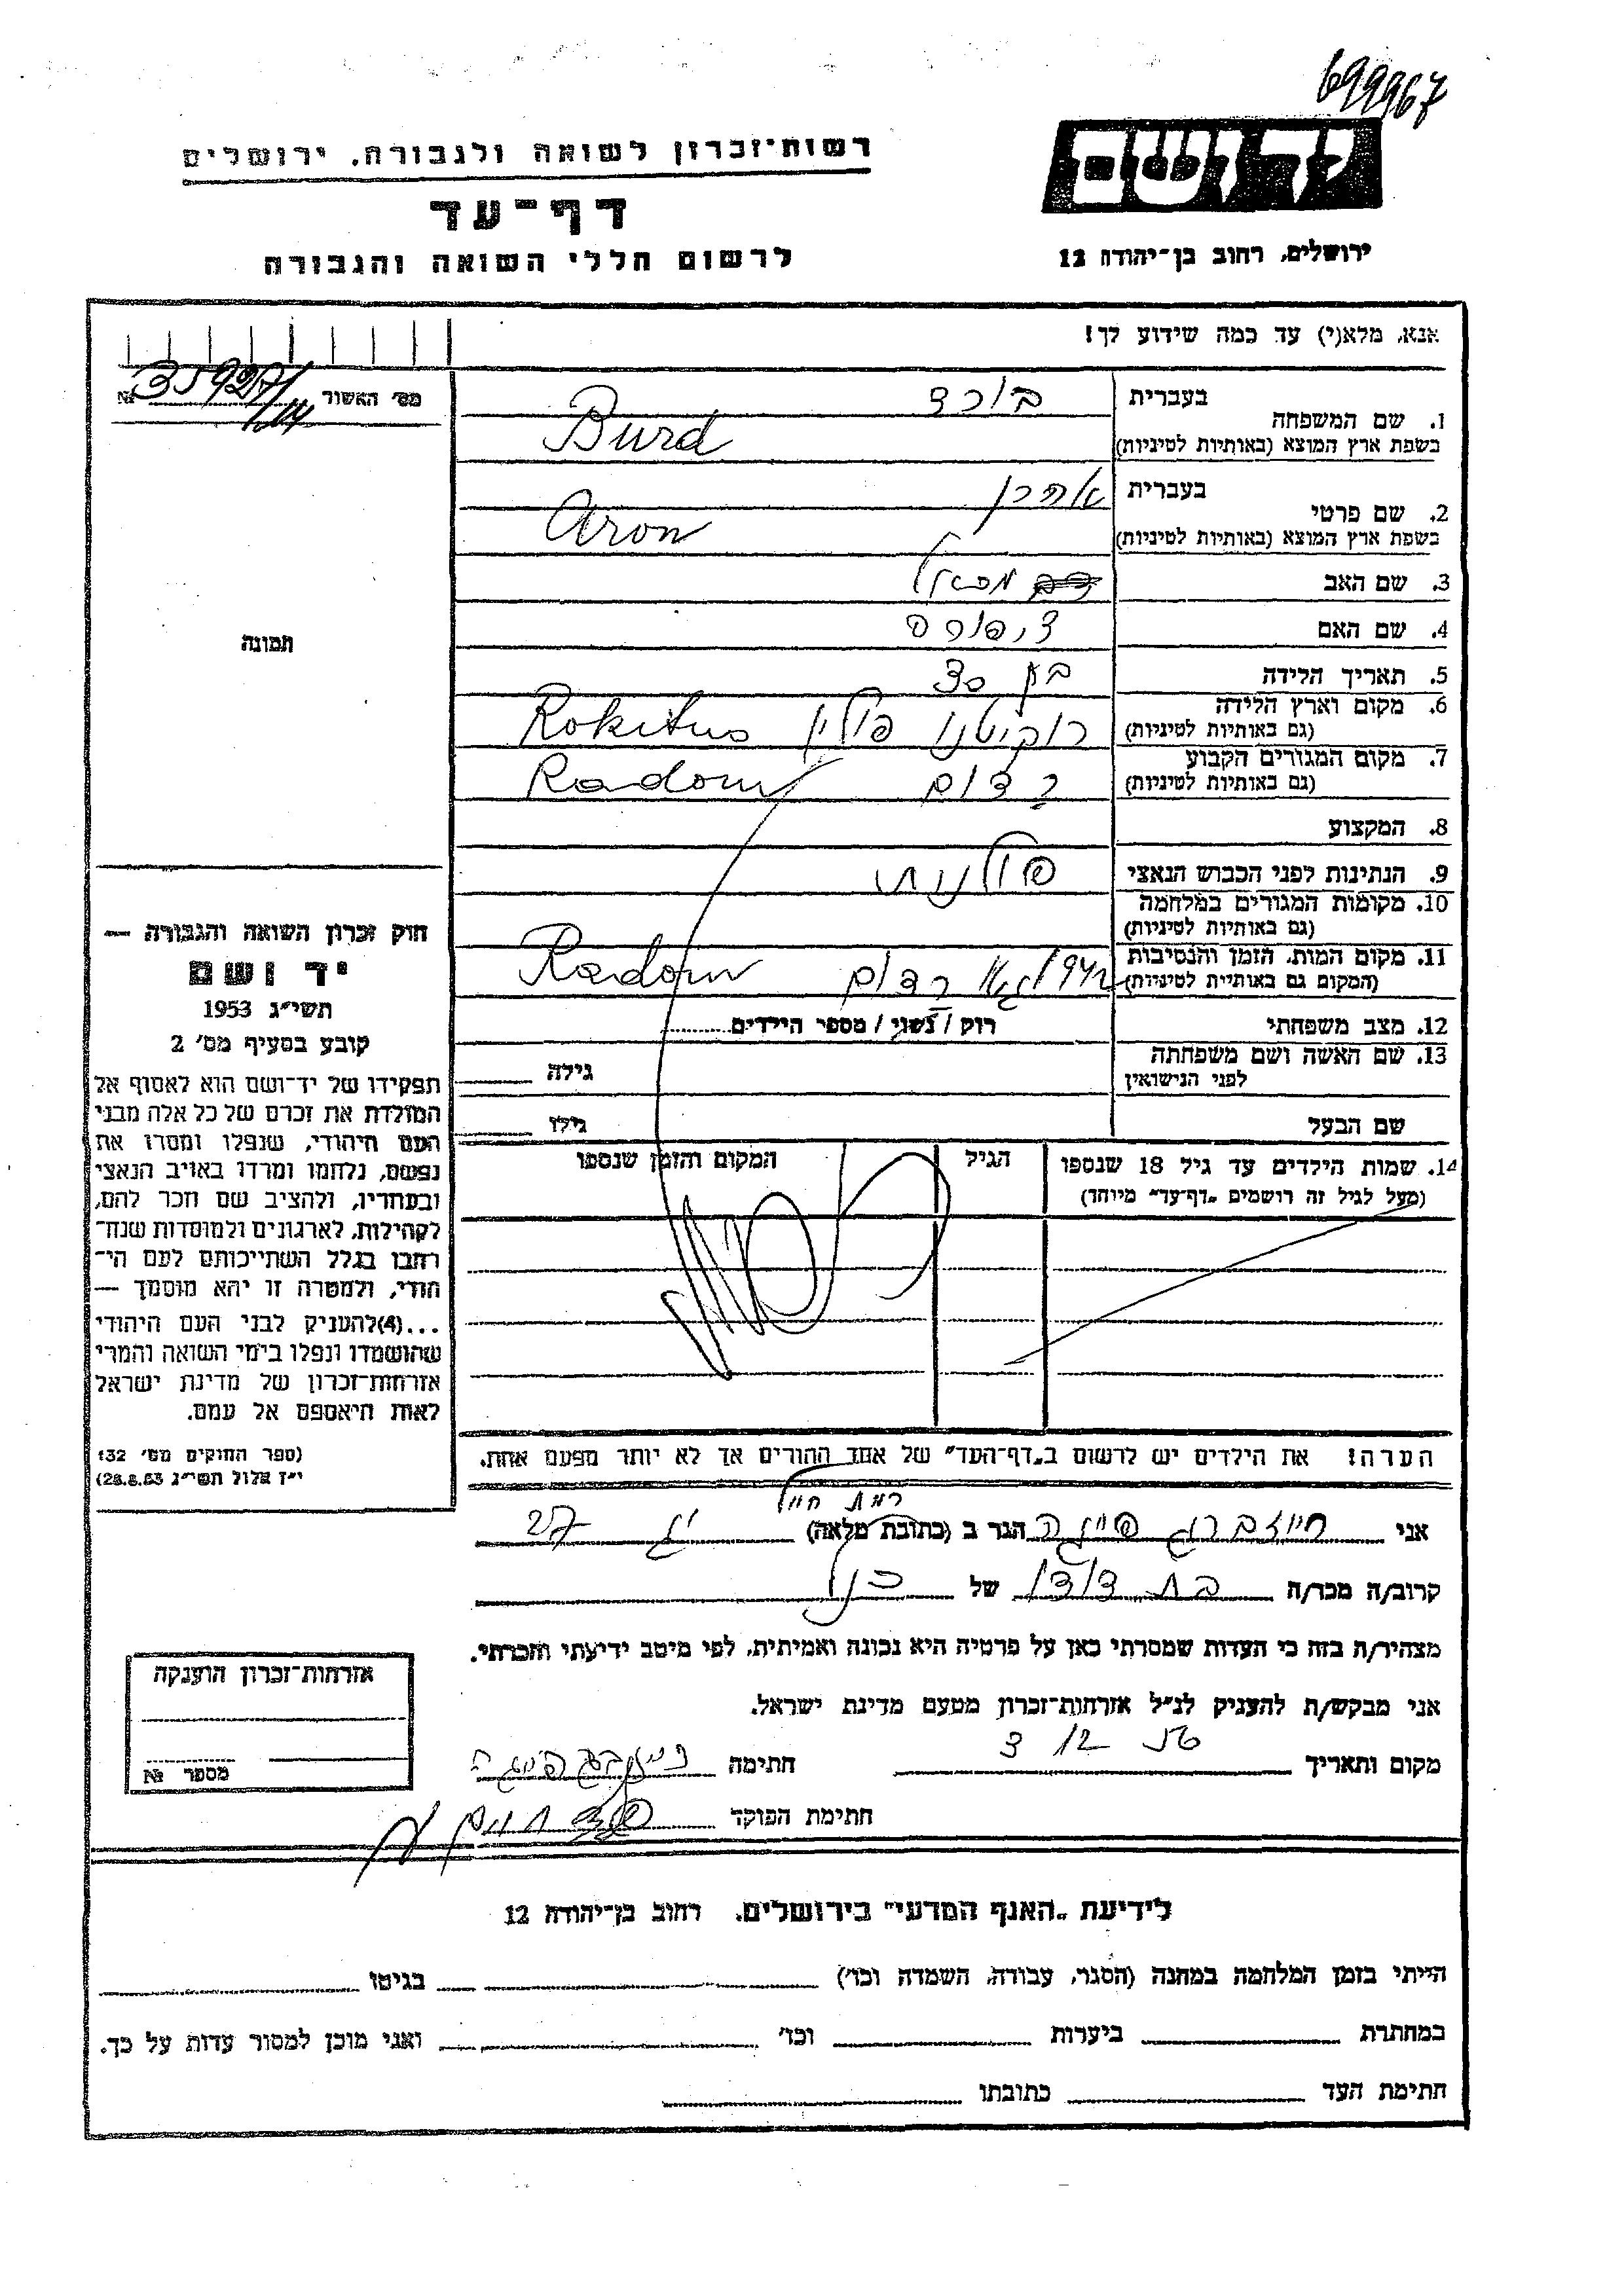 699967
רשות־זכרון לשואה ולגבורה, ירושלים
דף־עד
לרשום חללי השואה והגבורה
יד ושם
ירושלים, רחוב בן־יהודה 12
אנא, מלא(י) עד כמה שידוע לך!
מס׳ האשור № 35927/
1. שם המשפחה
בעברית בורד
בשפת ארץ המוצא (באותיות לטיניות) Burd
2. שם פרטי
בעברית אהרן
בשפת ארץ המוצא (באותיות לטיניות) Aron
3. שם האב
4. שם האם ציפורה
5. תאריך הלידה בן 30
6. מקום וארץ הלידה
(גם באותיות לטיניות) רוקיטנו פולין Rokitno
7. מקום המגורים הקבוע
(גם באותיות לטיניות) רדום Radom
8. המקצוע
9. הנתינות לפני הכבוש הנאצי פולנית
10. מקומות המגורים במלחמה
(גם באותיות לטיניות)
11. מקום המות, הזמן והנסיבות
(המקום גם באותיות לטיניות) רדום Radom
12. מצב משפחתי רוק / נשוי / מספר הילדים
13. שם האשה ושם משפחתה
לפני הנישואין גילה
שם הבעל גילו
14. שמות הילדים עד גיל 18 שנספו
(מעל לגיל זה רושמים „דף־עד״ מיוחד)
הגיל
המקום והזמן שנספו
הערה! את הילדים יש לרשום ב„דף־העד״ של אחד ההורים אך לא יותר מפעם אחת.
תמונה
חוק זכרון השואה והגבורה —
יד ושם
תשי״ג 1953
קובע בסעיף מס׳ 2
תפקידו של יד־ושם הוא לאסוף אל
המולדת את זכרם של כל אלה מבני
העם היהודי, שנפלו ומסרו את
נפשם, נלחמו ומרדו באויב הנאצי
ובעוזריו, ולהציב שם וזכר להם,
לקהילות, לארגונים ולמוסדות שנח־
רבו בגלל השתייכותם לעם הי־
הודי, ולמטרה זו יהא מוסמך —
...(4) להעניק לבני העם היהודי
שהושמדו ונפלו בימי השואה והמרי
אזרחות־זכרון של מדינת ישראל
לאות היאספם אל עמם.
(ספר החוקים מס׳ 132
י״ז אלול תשי״ג 28.8.53)
רמת חיל
אני הגר ב (כתובת מלאה) 27
קרוב/ה מכר/ה בת דודו של הנ״ל
מצהיר/ה בזה כי העדות שמסרתי כאן על פרטיה היא נכונה ואמיתית, לפי מיטב ידיעתי והכרתי.
אני מבקש/ת להעניק לנ״ל אזרחות־זכרון מטעם מדינת ישראל.
מקום ותאריך חתימה
חתימת הפוקד
אזרחות־זכרון הוענקה
מספר №
לידיעת „האגף המדעי״ בירושלים, רחוב בן־יהודה 12
הייתי בזמן המלחמה במחנה (הסגר, עבודה, השמדה וכו׳) בגיטו
במחתרת ביערות וכו׳ ואני מוכן למסור עדות על כך.
חתימת העד כתובתו